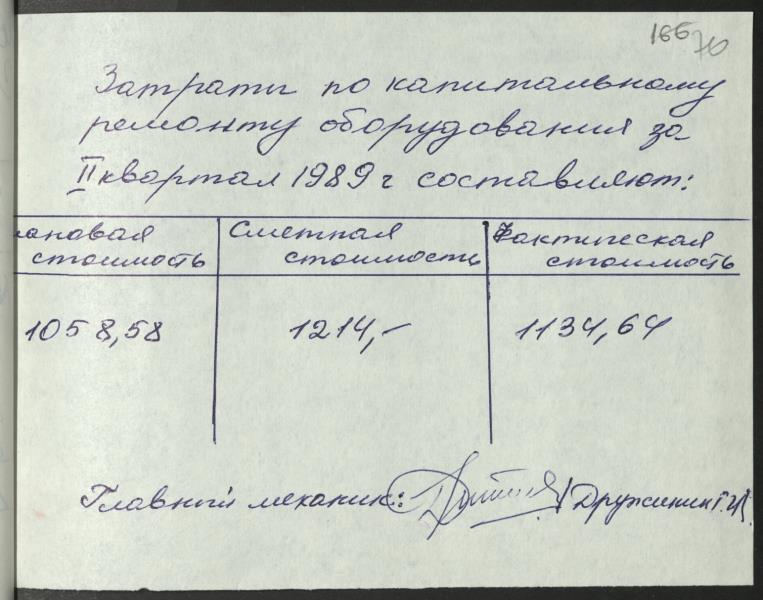 166 70
Затраты по капитальному
ремонту оборудования за
II квартал 1989 г составляют:
лановая Сметная Фактическая
стоимость стоимость стоимость
1058,58 1214,- 1134,64
Главный механик: / Дружинин Г.И.